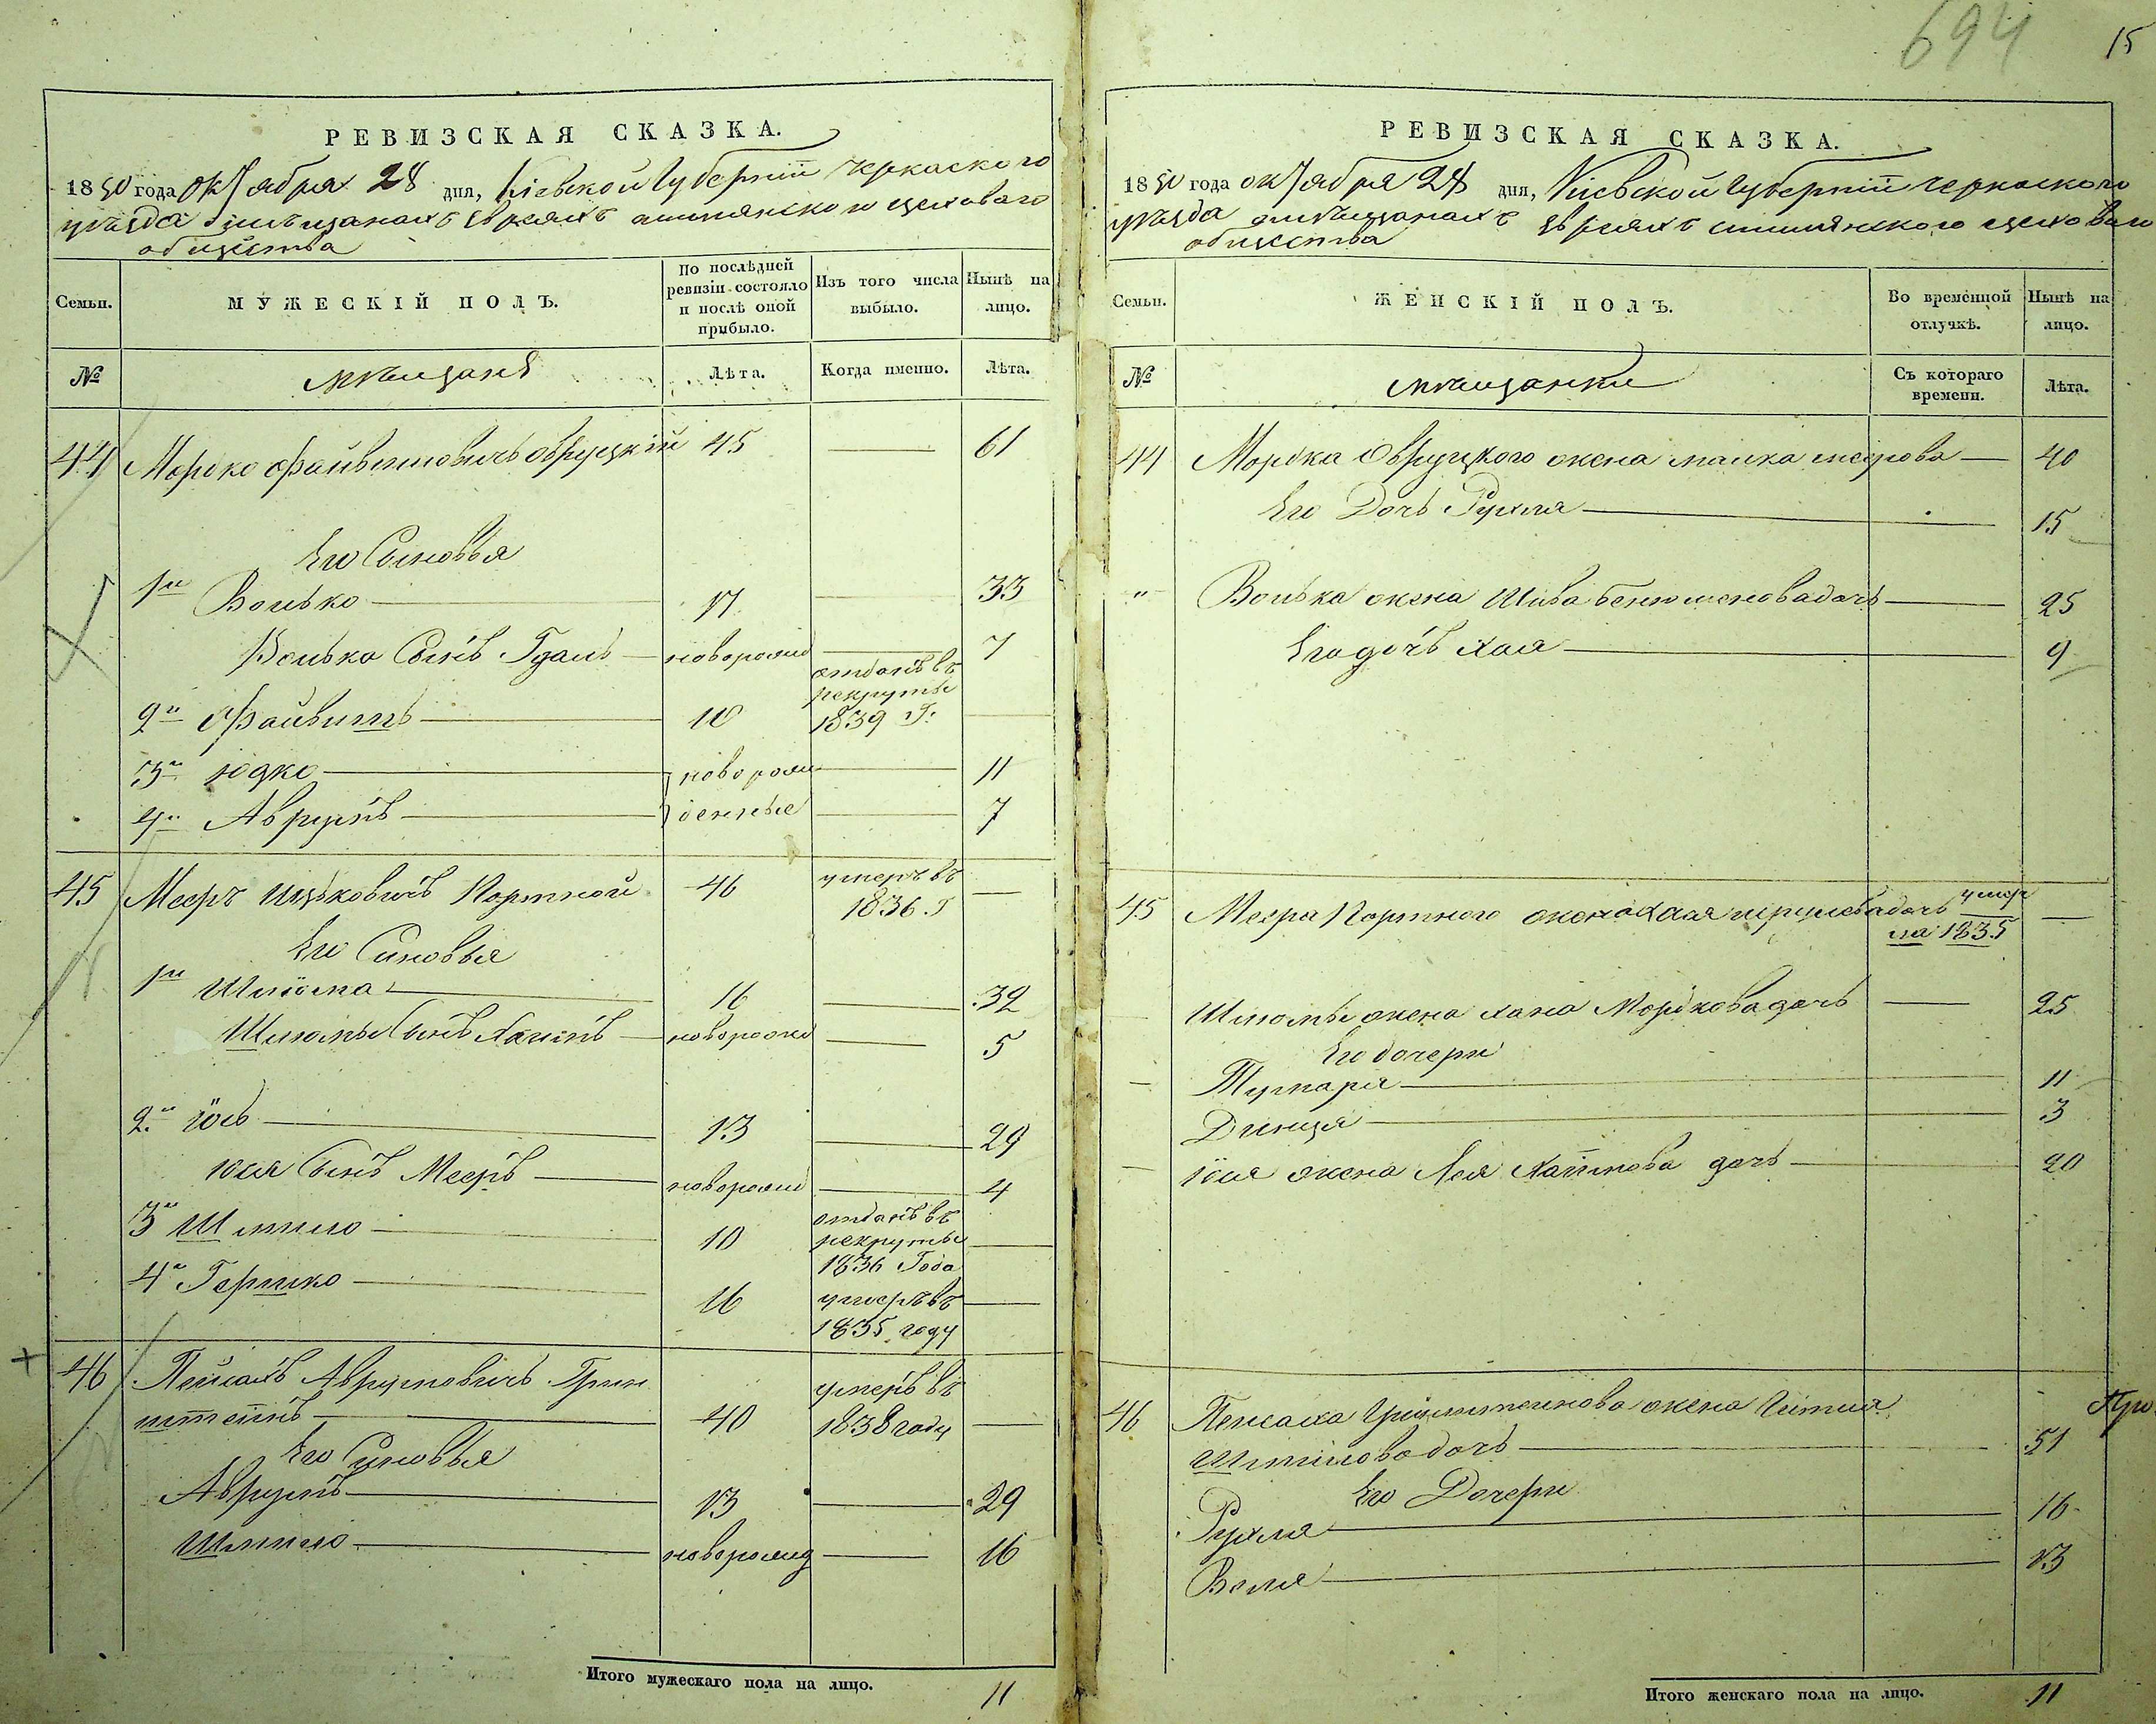 694
15
РЕВИЗСКАЯ СКАЗКА.
1850 года октября 28 дня, Кіевской Губерніи черкаского
уѣзда о мѣщанахъ евреяхъ цеховаго
общества
Семьи.
МУЖЕСКІЙ ПОЛЪ.
По послѣдней ревизіи состояло и послѣ оной прибыло.
Изъ того числа выбыло.
Нынѣ на лицо.
№
мѣщане
Лѣта.
Когда именно.
Лѣта.
44 Морко Файвишовичъ Овруцкій 45 — 61
Его Сыновья
1й Волько — 17 — 33
Волька Сынъ — новорожд — 7
2й Файвишъ — 10 отданъ въ рекруты 1839 Г. —
3й Юдко — новорож — 11
4й Аврумъ — денные — 7
45 Мееръ Ицьковичъ Портной 46 умеръ въ 1836 Г —
Его Сыновья
1й Шлиома — 16 — 32
Шлиомы Сынъ Хаимъ — новорожд — 5
2й Юсь — 13 — 29
Юся Сынъ Мееръ — новорожд — 4
3й Шмило — 10 отданъ въ рекруты 1836 Года —
4й Гершко — 16 умеръ въ 1835 году —
46 Пейсахъ Аврумовичъ Грин
штейнъ — 40 умеръ въ 1838 году —
Его Сыновья
Аврумъ — 13 — 29
Шмило — новорожд — 16
Итого мужескаго пола на лицо. 11
РЕВИЗСКАЯ СКАЗКА.
1850 года октября 28 дня, Кіевской Губерніи черкаского
уѣзда о мѣщанахъ евреяхъ
общества
Семьи.
ЖЕНСКІЙ ПОЛЪ.
Во временной отлучкѣ.
Нынѣ на лицо.
№
мѣщанки
Съ котораго времени.
Лѣта.
44 Морка Овруцкого жена Малка — 40
Его Дочь Рухля — 15
" Волька жена Шива — 25
Его дочь Хая — 9
45 Меера Портного жена Хая дочь умер
ла 1835 —
Шлиомы жена Хана Моркова дочь — 25
Его дочери
— 11
— 3
Юся жена Лея Хаимова дочь — 20
46 Пейсаха Гринштейнова жена
Шмилова дочь — 51
Его Дочери
Рухля — 16
— 13
Итого женскаго пола на лицо. 11